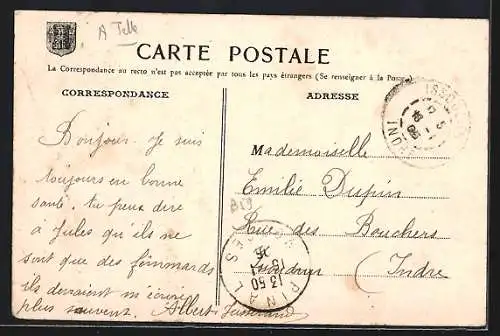 A Telle
CARTE POSTALE
La Correspondance au recto n'est pas acceptée par tous les pays étrangers (Se renseigner à la Poste.)
CORRESPONDANCE
ADRESSE
Bonjour. Je suis
toujours en bonne
santé, tu peux dire
à Jules qu'ils ne
sont que des
ils devraient m'écrire
plus souvent. Albert
Mademoiselle
Emilie Dupin
Rue des Bouchers
Issoudun
(Indre)
ISSOUDUN
EPINAL
13 50